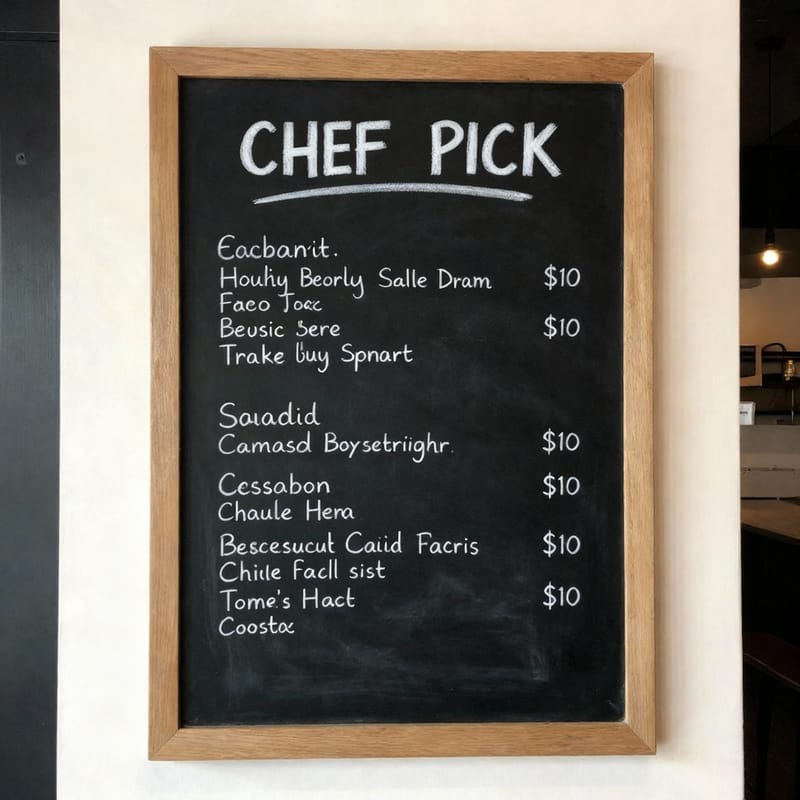 CHEF PICK
Eacbanit.
Beorly Salle Dram $10
Faeo
Beusic Sere $10
Trake buy Spnart
Sauadid
Camasd Boysetriighr. $10
Cessabon $10
Chaule Hera
Bescesucut Caiid Facris $10
Chiile Facll sist
Tome's Hact $10